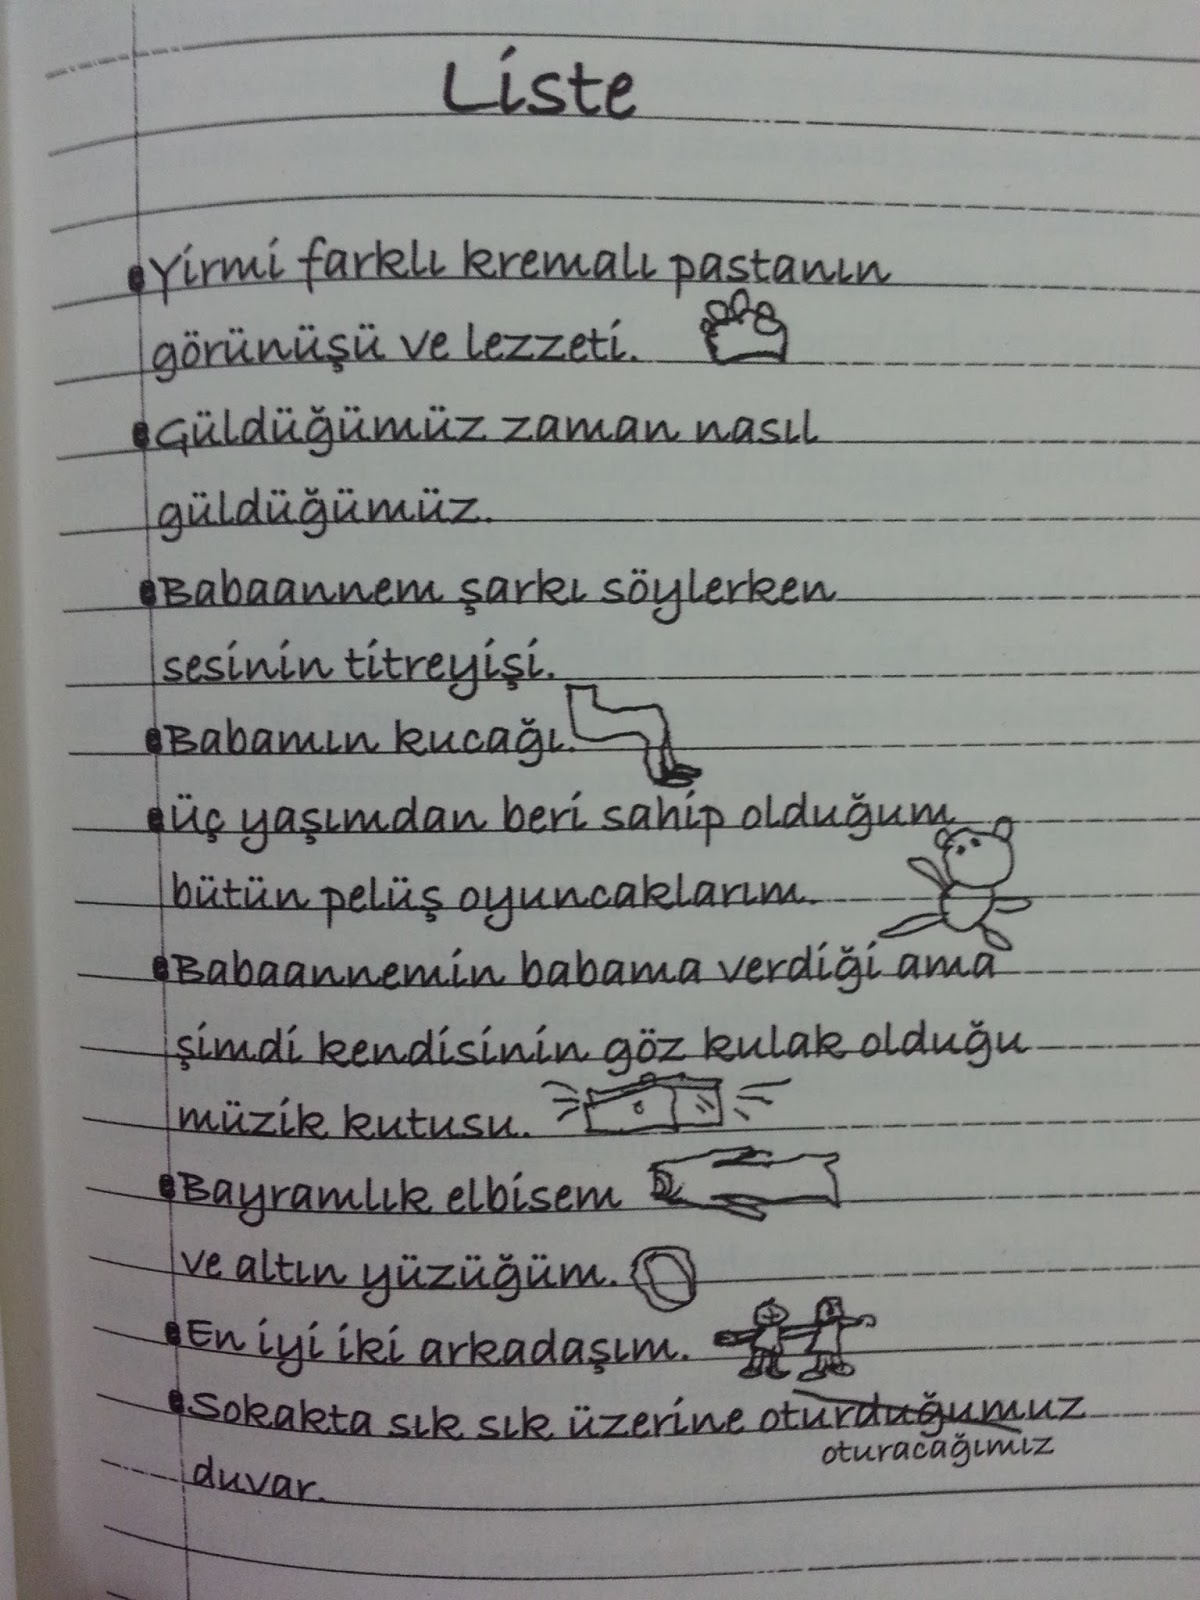 Liste
• Yirmi farklı kremalı pastanın
görünüşü ve lezzeti.
• Güldüğümüz zaman nasıl
güldüğümüz.
• Babaannem şarkı söylerken
sesinin titreyişi.
• Babamın kucağı.
• üç yaşımdan beri sahip olduğum
bütün pelüş oyuncaklarım.
• Babaannemin babama verdiği ama
şimdi kendisinin göz kulak olduğu
müzik kutusu.
• Bayramlık elbisem
ve altın yüzüğüm.
• En iyi iki arkadaşım.
• Sokakta sık sık üzerine oturduğumuz
oturacağımız
duvar.